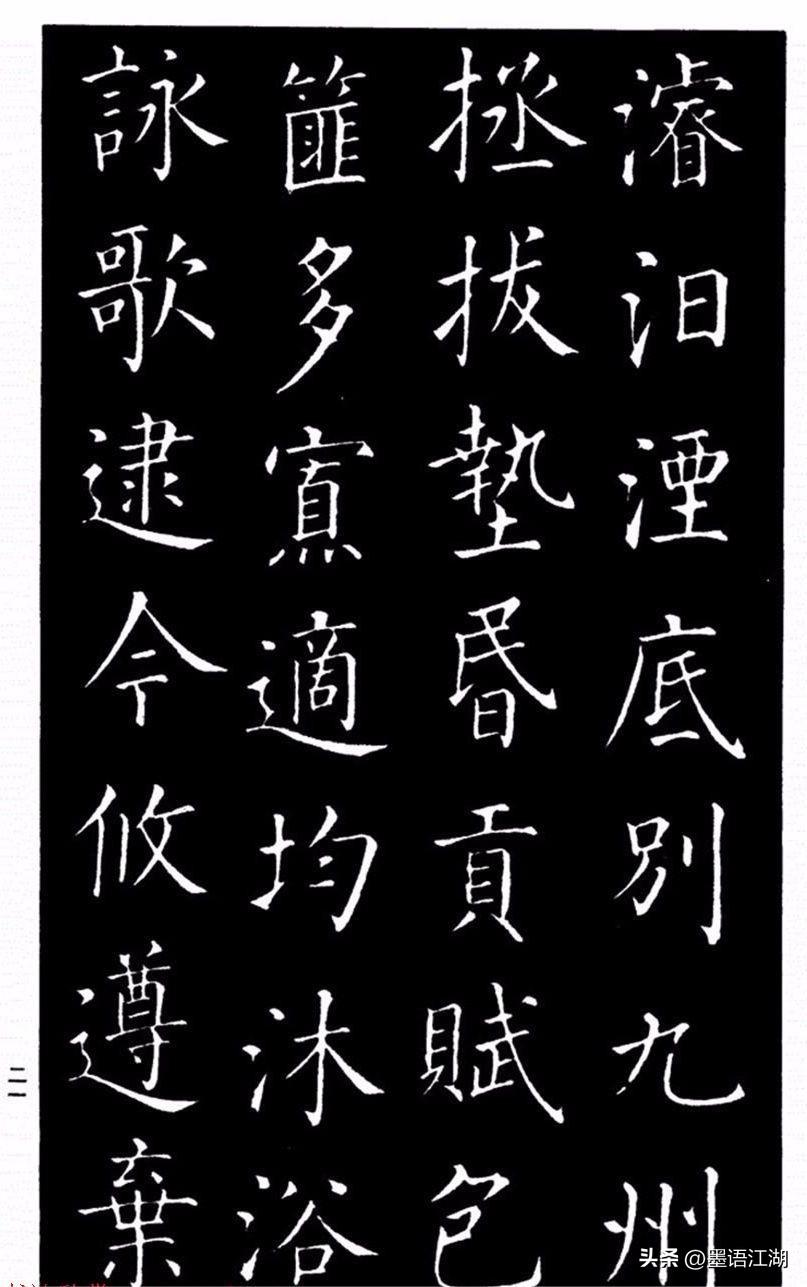 濬汨湮底別九州
拯拔墊昏貢賦包
篚多寡適均沐浴
詠歌逮今攸遵棄
二一
头条 @墨语江湖